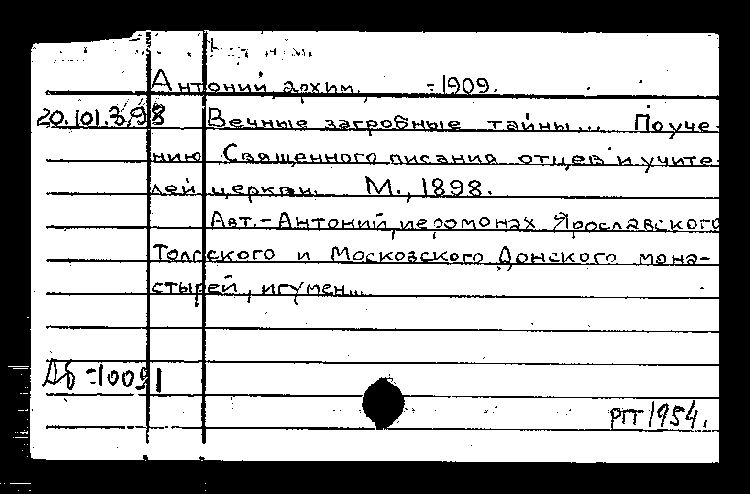 Антоний, архим. -1909.
20.101.3.98 Вечные загробные тайны... По уче-
нию Священного писания отцев и учите-
лей церкви. М., 1898.
Авт.-Антоний, иеромонах Ярославского
Толгского и Московского Донского мона-
стырей, игумен...
Дб-10091
РПГ 1954.